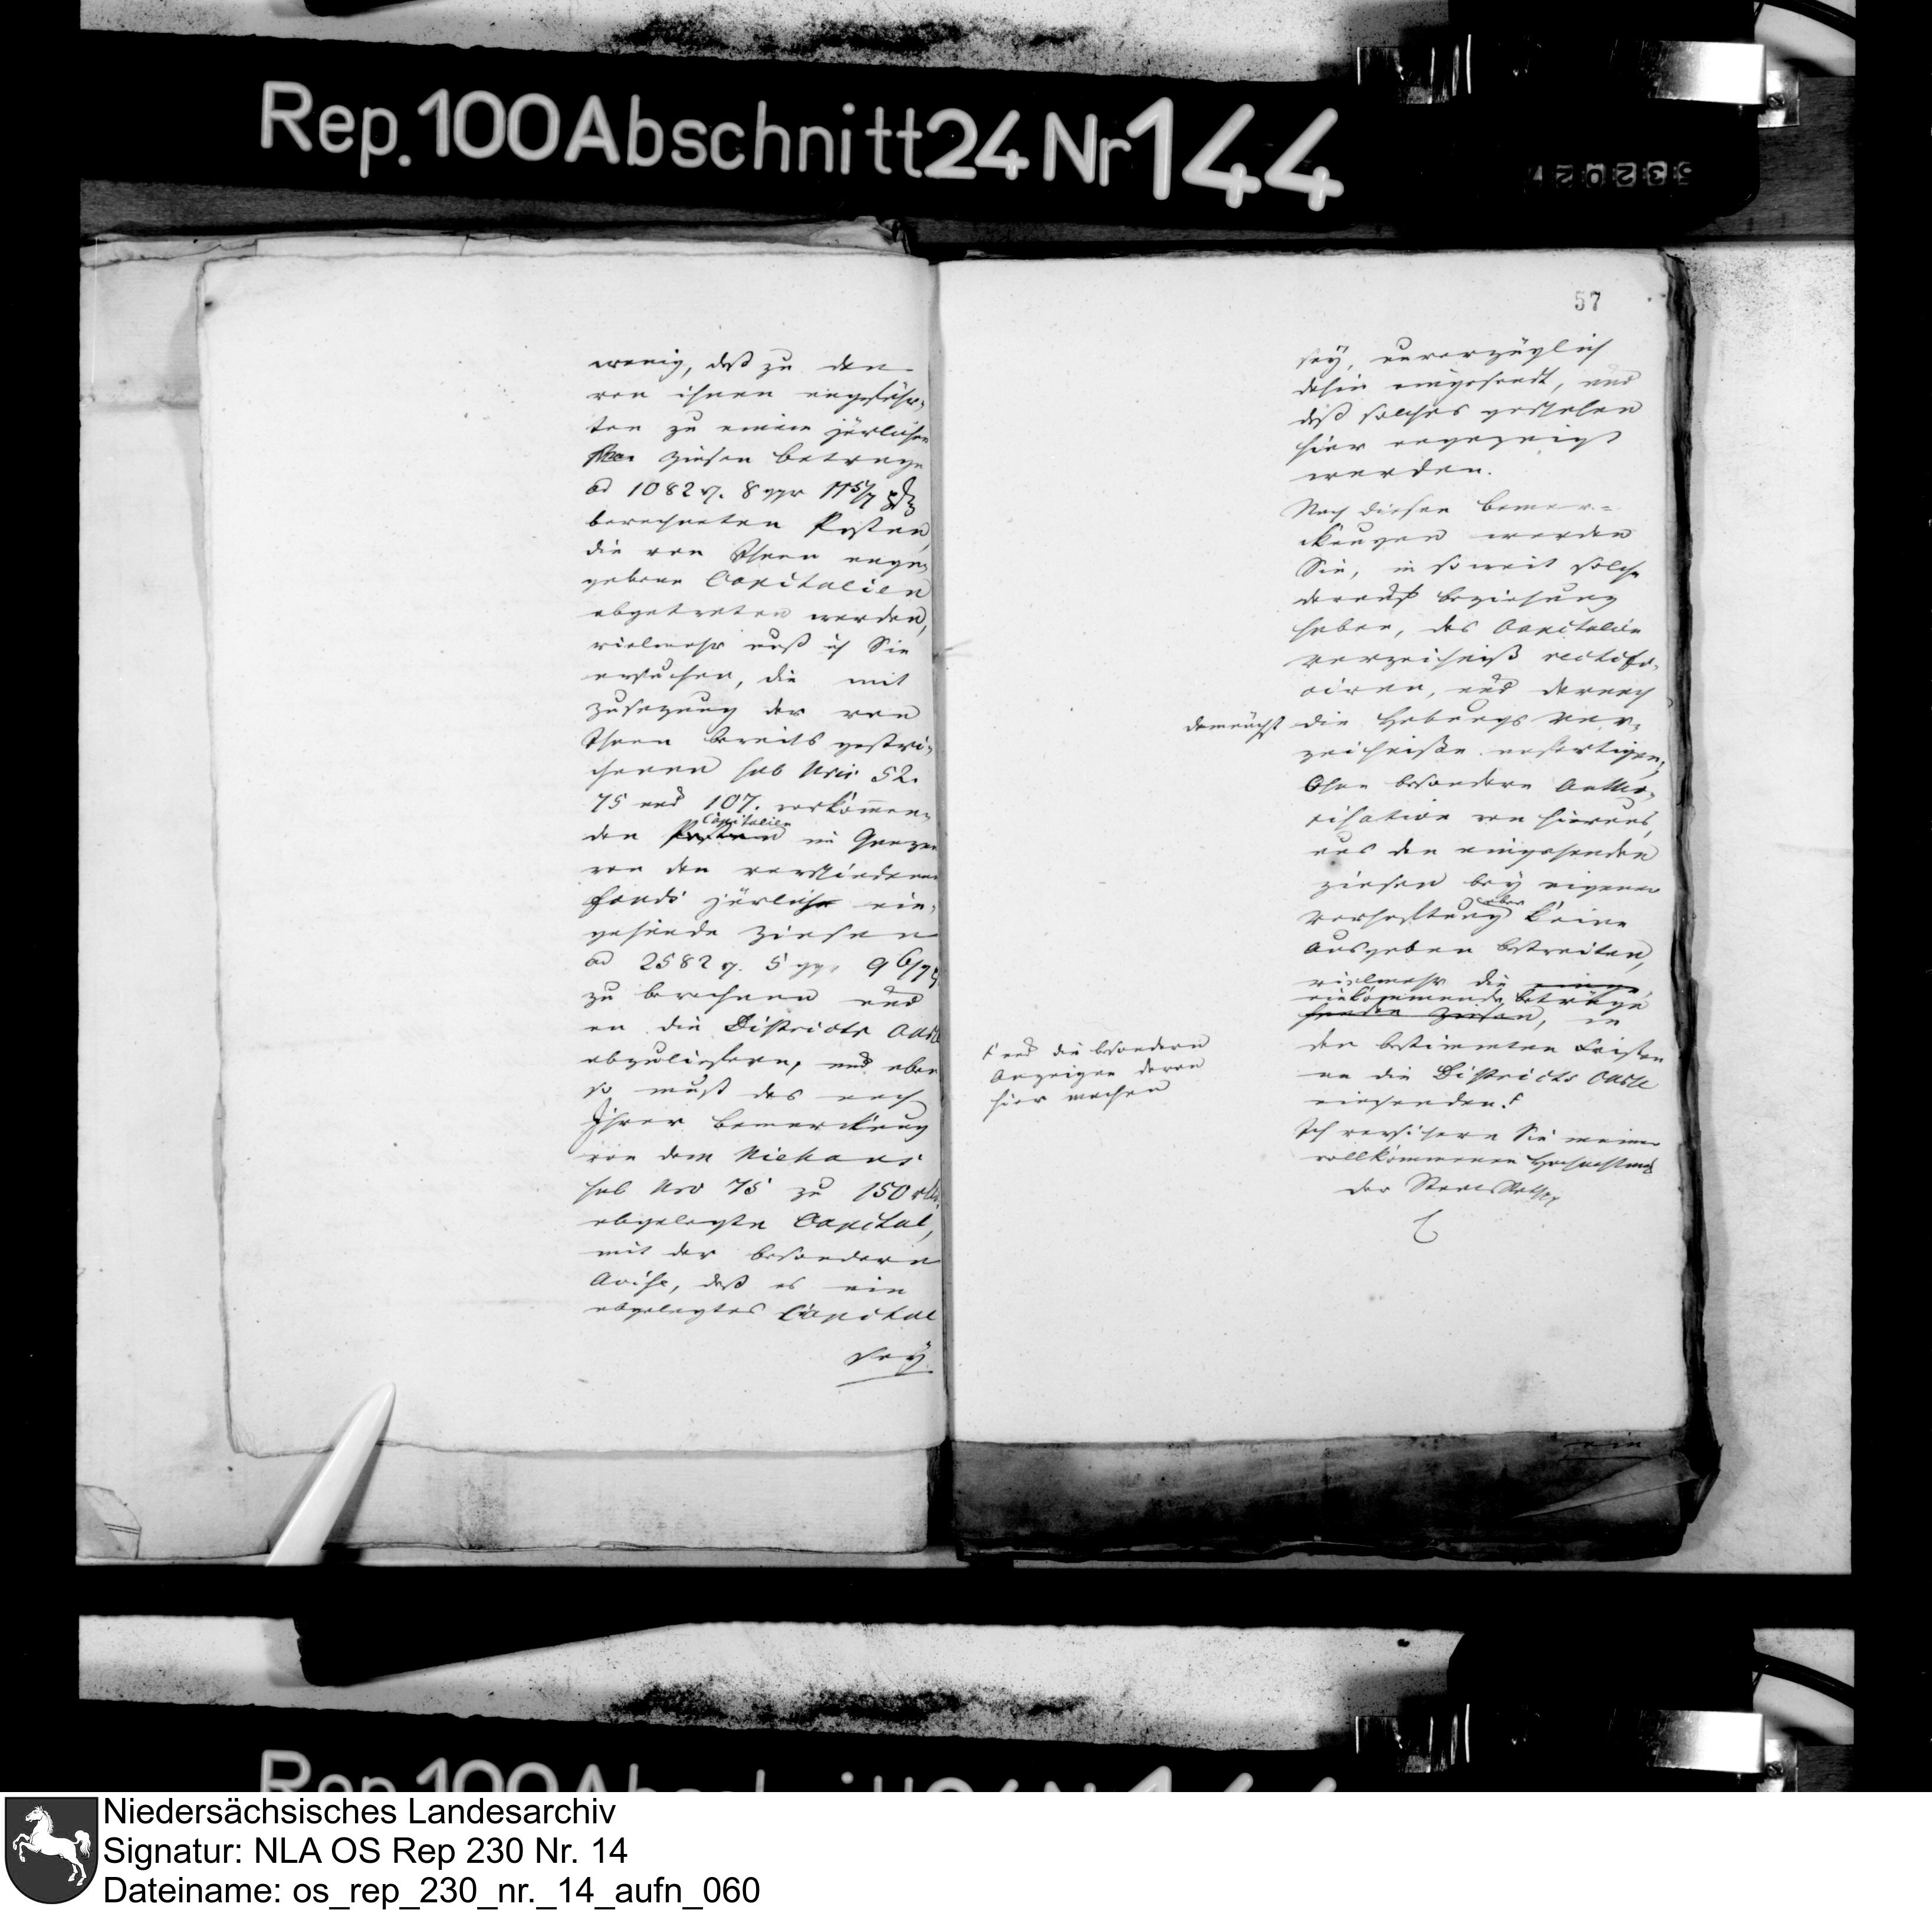 Rep. 100 Abschnitt 24 Nr 144
wenig, daß zu den
von ihnen angeführ-
ten zu einem järlichen
Zinsen betrage
ad 1082 r. 8 ggr 11 5/7 d
berechneten Posten,
die von Ihnen ange-
gebene Capitalien
abgetreten werden,
vielmehr muß ich Sie
ersuchen, die mit
Zusezung der von
Ihnen bereits gestri-
chenen sub Nris 52.
75 und 107. vorkommen-
den Posten Capitalien im Ganzen
von den verschiedenen
Fonds järlich ein-
gehende Zinsen
ad 2582 r. 5 ggr 9 6/7 d
zu berechnen und
an die Districts Casse
abzuliefern, und eben
so muß das nach
Ihrer Bemerckung
von dem Niehaus
sub Nro 75 zu 150 rth.
abgelegte Capital,
mit der besondern
Avise, daß es ein
abgelegtes Capital
sey
57
sey, unverzüglich
dahin eingesandt, und
daß solches geschehen
hier angezeigt
werden.
Nach diesen Bemer-
ckungen werden
Sie, in so weit solche
darauf beziehung
haben, das Capitalien
verzeichniß rectifi-
ciren, und darnach
demnächst die Hebungs Ver-
zeichniße anfertigen,
Ohne besondere Autho-
risation von hieraus,
aus den eingehenden
Zinsen bey eigener
Verhaftung aber keine
Ausgaben bestreiten,
vielmehr die einge-
einkommende beträge
henden Zinsen, in
den bestimmten Fristen
an die Districts Casse
einsenden. F
F und die besondern
Anzeigen davon
hier machen
Ich versichere Sie meiner
vollkommenen Hochachtung
Der StaatsRath
ein
Niedersächsisches Landesarchiv
Signatur: NLA OS Rep 230 Nr. 14
Dateiname: os_rep_230_nr._14_aufn_060